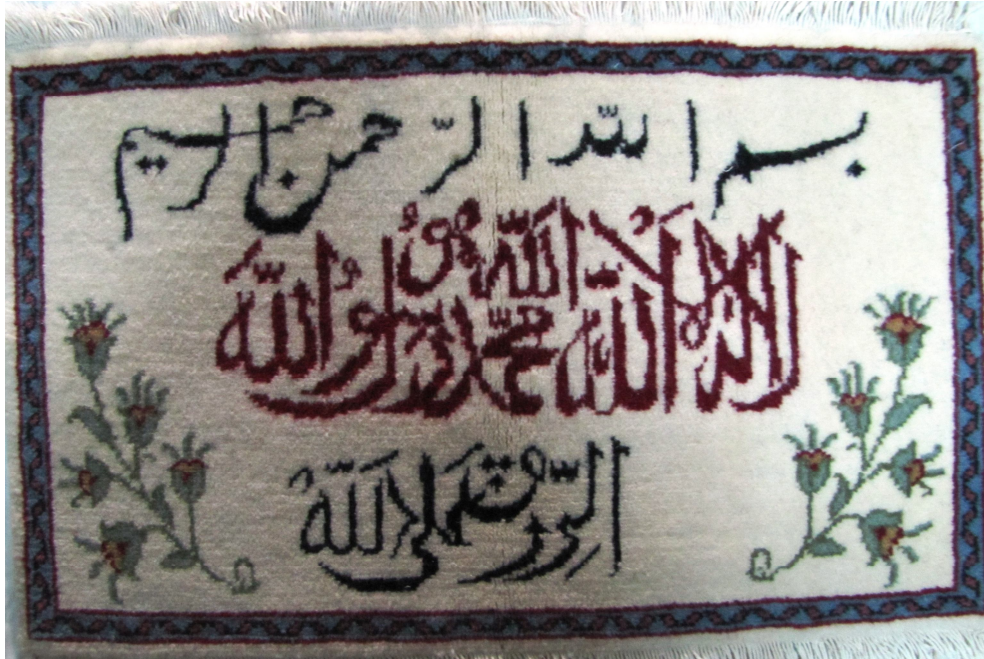 بسم الله الرّحمن الرحيم
لا اله الا الله محمد رسول الله
الرزق على الله